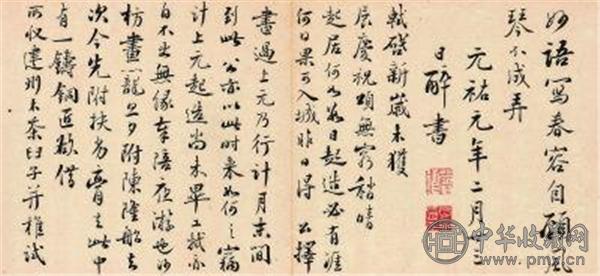 妙語寫春容自顧
琴不成弄
元祐元年二月廿三
日醉書
軾啓新歲未獲
展慶祝頌無窮稍晴
起居何如數日起造必有涯
何日果可入城昨日得公擇
書過上元乃行計月末間
到此公亦以此時来如何〻竊
計上元起造尚未畢工軾亦
自不出無緣奉陪夜遊也沙
枋畫籠旦夕附陳隆船去
次今先附扶劣膏去此中
有一鑄銅匠欲借
所收建州木茶臼子并椎試